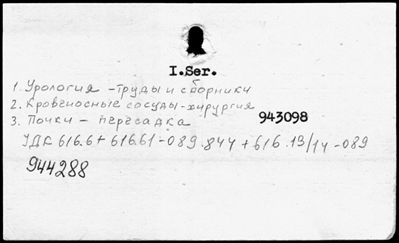 I.Ser.
1. Урология - труды и сборники
2. Кровеносные сосуды - хирургия
3. Почки - пересадка
943098
УДК 616.6 + 616.61-089.844 + 616.13/14-089
944288